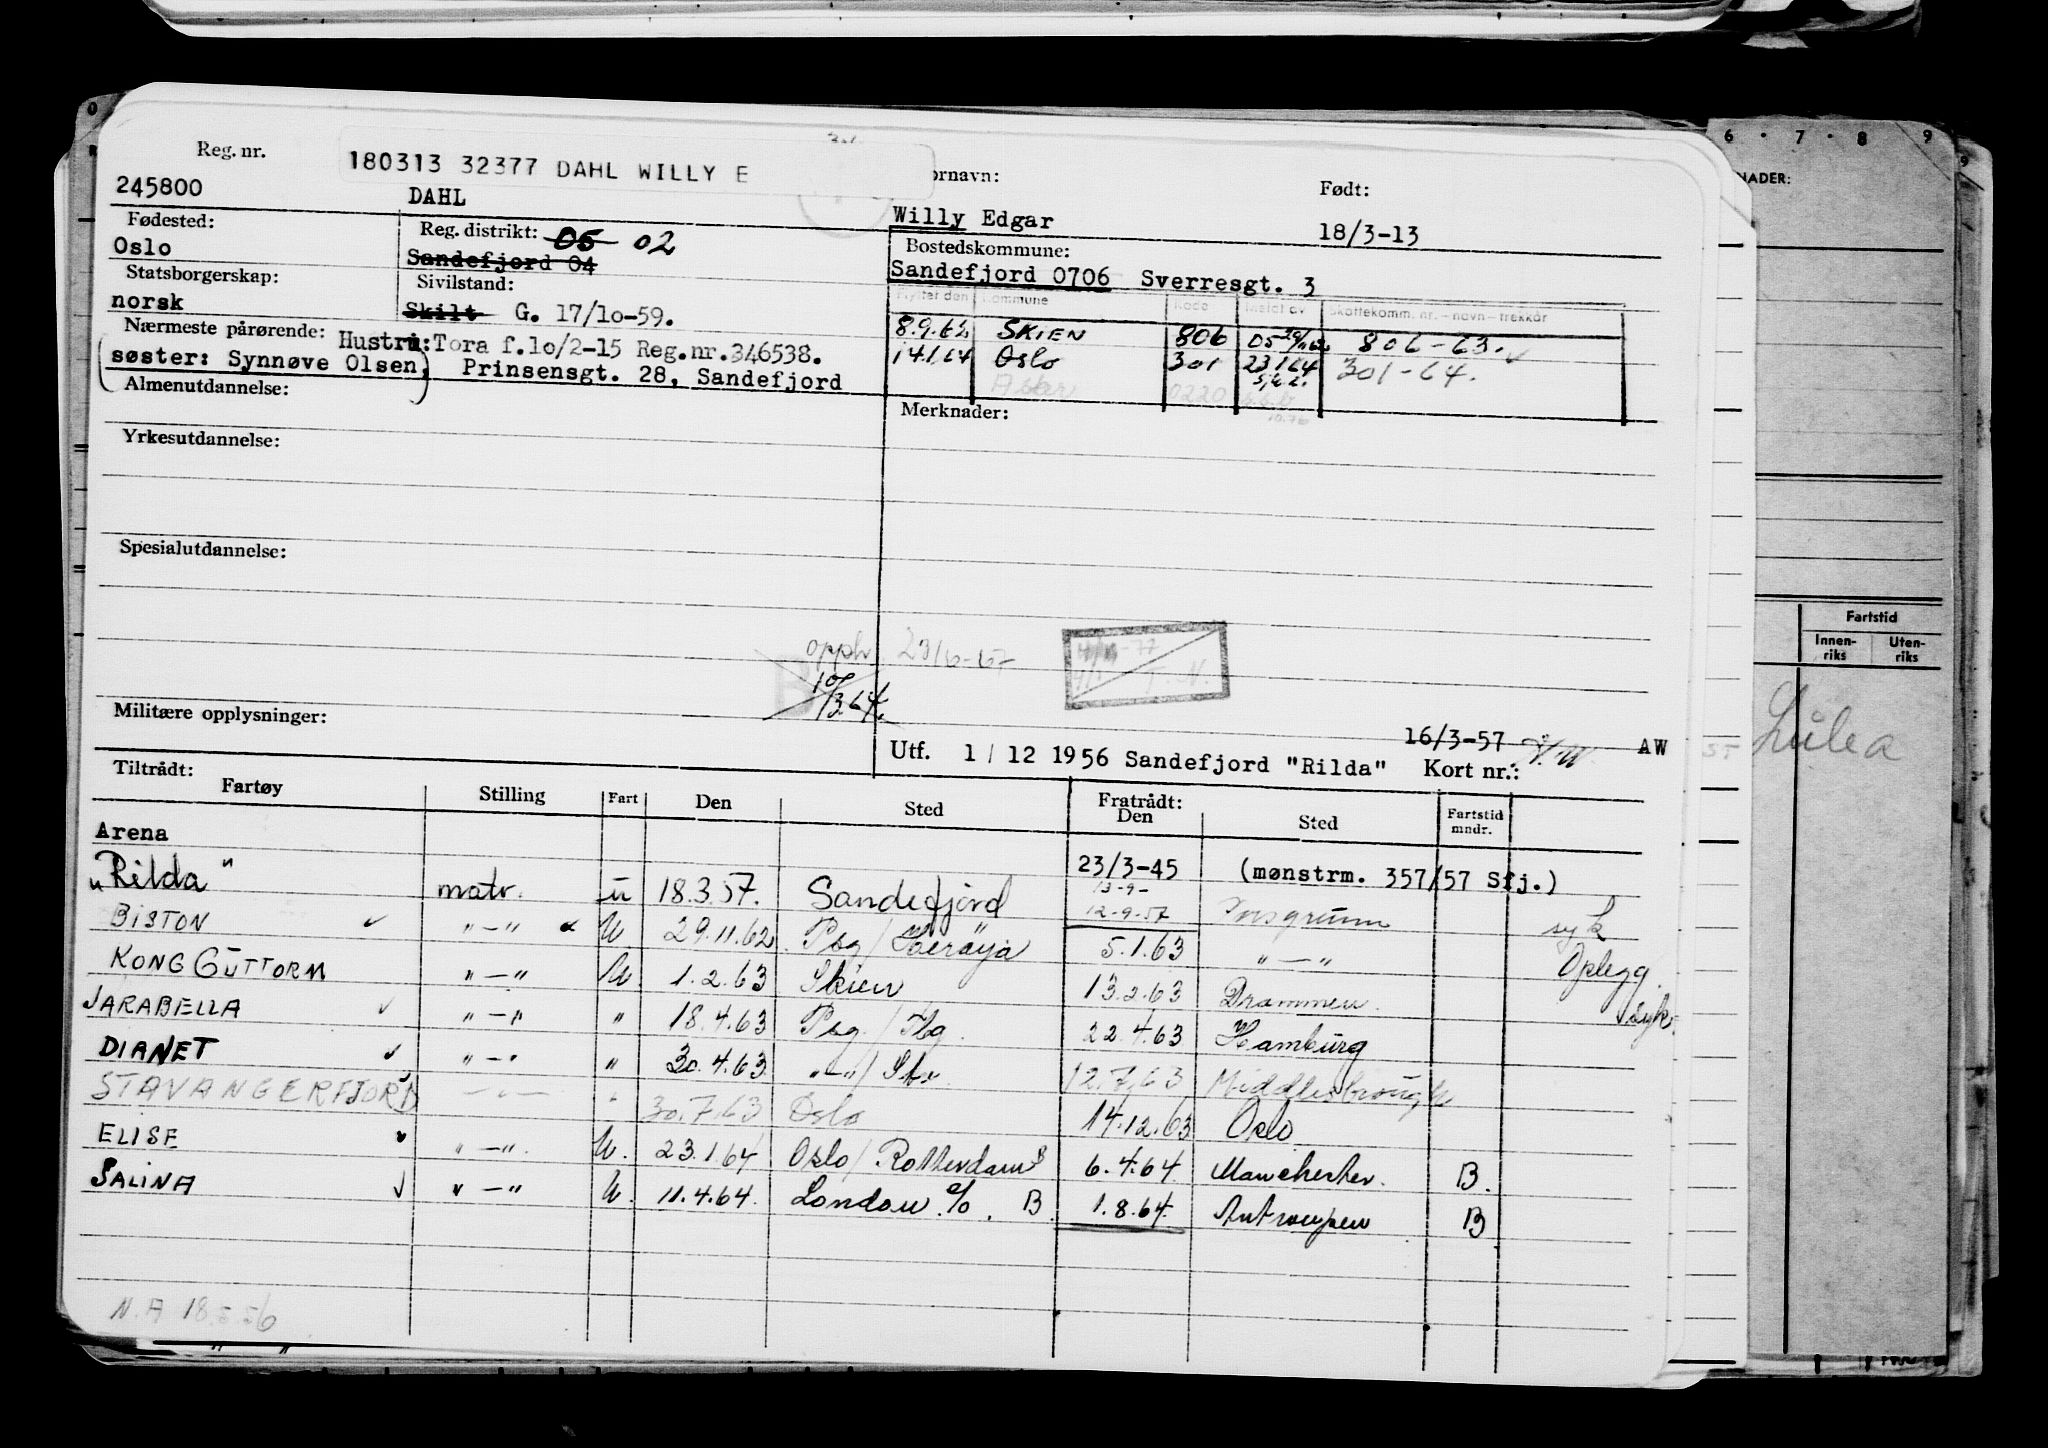 6 . 7 . 8 9
NADER:
Reg. nr.
180313 32377 DAHL WILLY E
ornavn:
Født:
245800
DAHL
Willy Edgar
18/3-13
Fødested:
Reg. distrikt: 05 02
Bostedskommune:
Oslo
Sandefjord 04
Sandefjord 0706 Sverresgt. 3
Statsborgerskap:
Sivilstand:
norsk
Skilt G. 17/10-59.
Flyttet den Kommune Kode Meldt av Skattekomm. nr. - navn - trekkår
Nærmeste pårørende: Hustru: Tora f.10/2-15 Reg.nr.346538.
8.9.62 SKIEN 806 05 806-63.
søster: Synnøve Olsen, Prinsensgt. 28, Sandefjord
14.1.64 Oslo 301 23164 301-64.
Asker 0220
Almenutdannelse:
Merknader:
Yrkesutdannelse:
Spesialutdannelse:
Fartstid
Innen-riks Uten-riks
opph. 23/6-67
Militære opplysninger:
16/3-57 AW
Utf. 1/12 1956 Sandefjord "Rilda" Kort nr.:
Luleå
Tiltrådt:
Fartøy Stilling Fart Den Sted Fratrådt: Den Sted Fartstid mndr.
Arena 23/3-45 (mønstrm. 357/57 Sfj.)
"Rilda" matr. u 18.3.57. Sandefjord 13-9- 12-9-57 Porsgrunn syk
BISTON "-" U. 29.11.62 Psg/Herøya 5.1.63 "-" Oplegg.
KONG GUTTORM "-" U. 1.2.63 Skien 13.2.63 Drammen. syk.
JARABELLA "-" " 18.4.63 Psg./Hbg. 22.4.63 Hamburg
DIANET "-" " 30.4.63 "-"/ 12.7.63 Middlesbrough
STAVANGERFJORD -"- " 30.7.63 Oslo 14.12.63 Oslo
ELISE "-" U. 23.1.64 Oslo/Rotterdam B 6.4.64 Manchester. B.
SALINA "-" U. 11.4.64. London %. B. 1.8.64. Antwerpen B
N.A 18.5.56